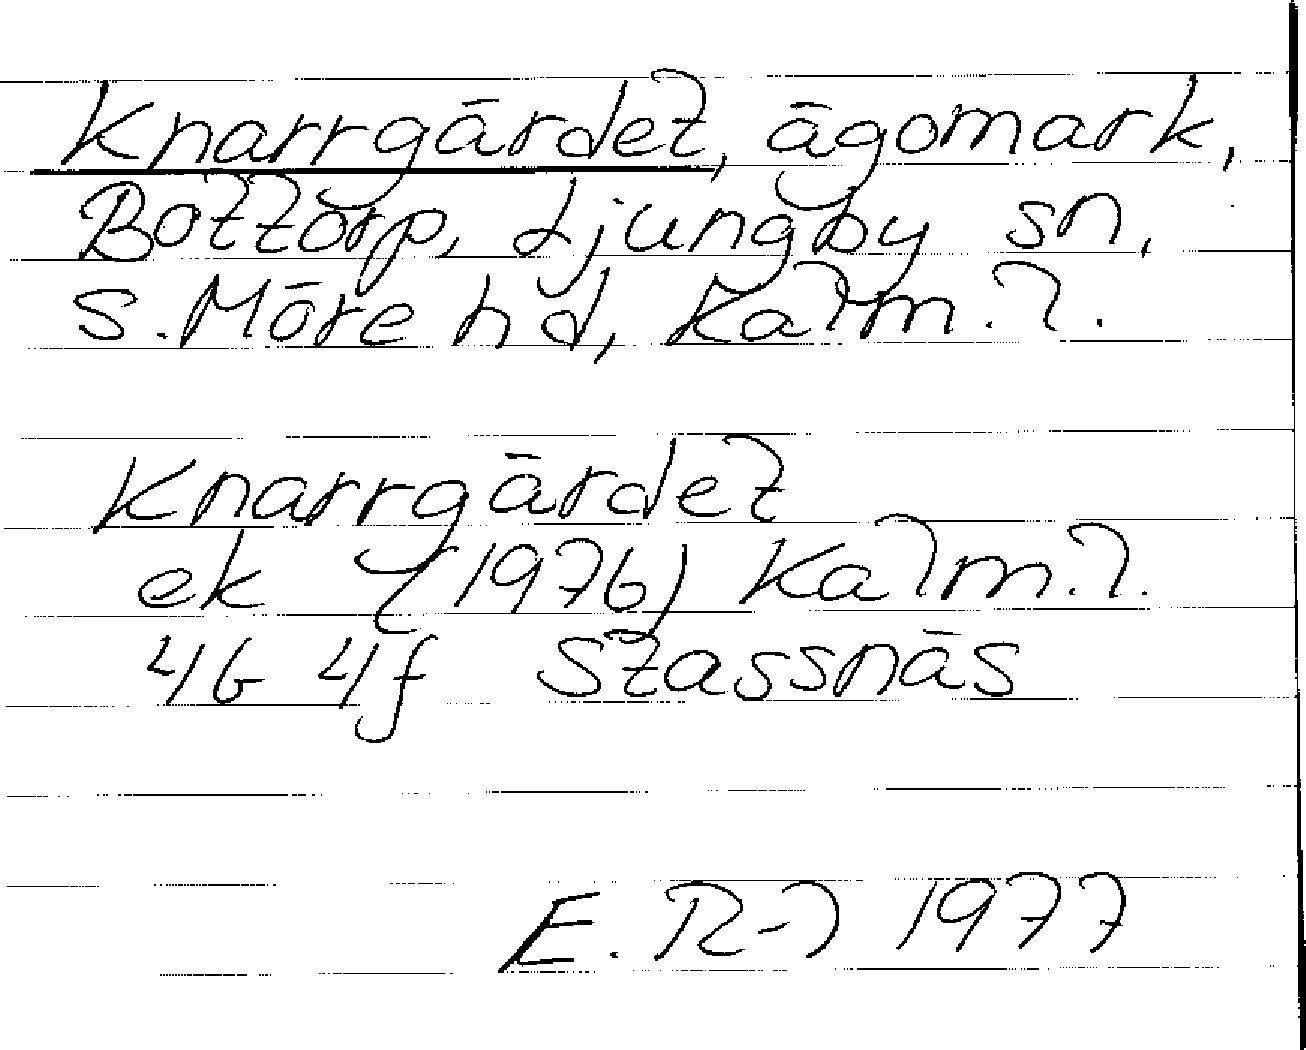 Knarrgärdet, ägomark,
Bottorp, Ljungby sn,
S. Möre hd, Kalm. l.
Knarrgärdet
ek (1976) Kalm. l.
4G 4f Stassnäs
E. R-l 1977